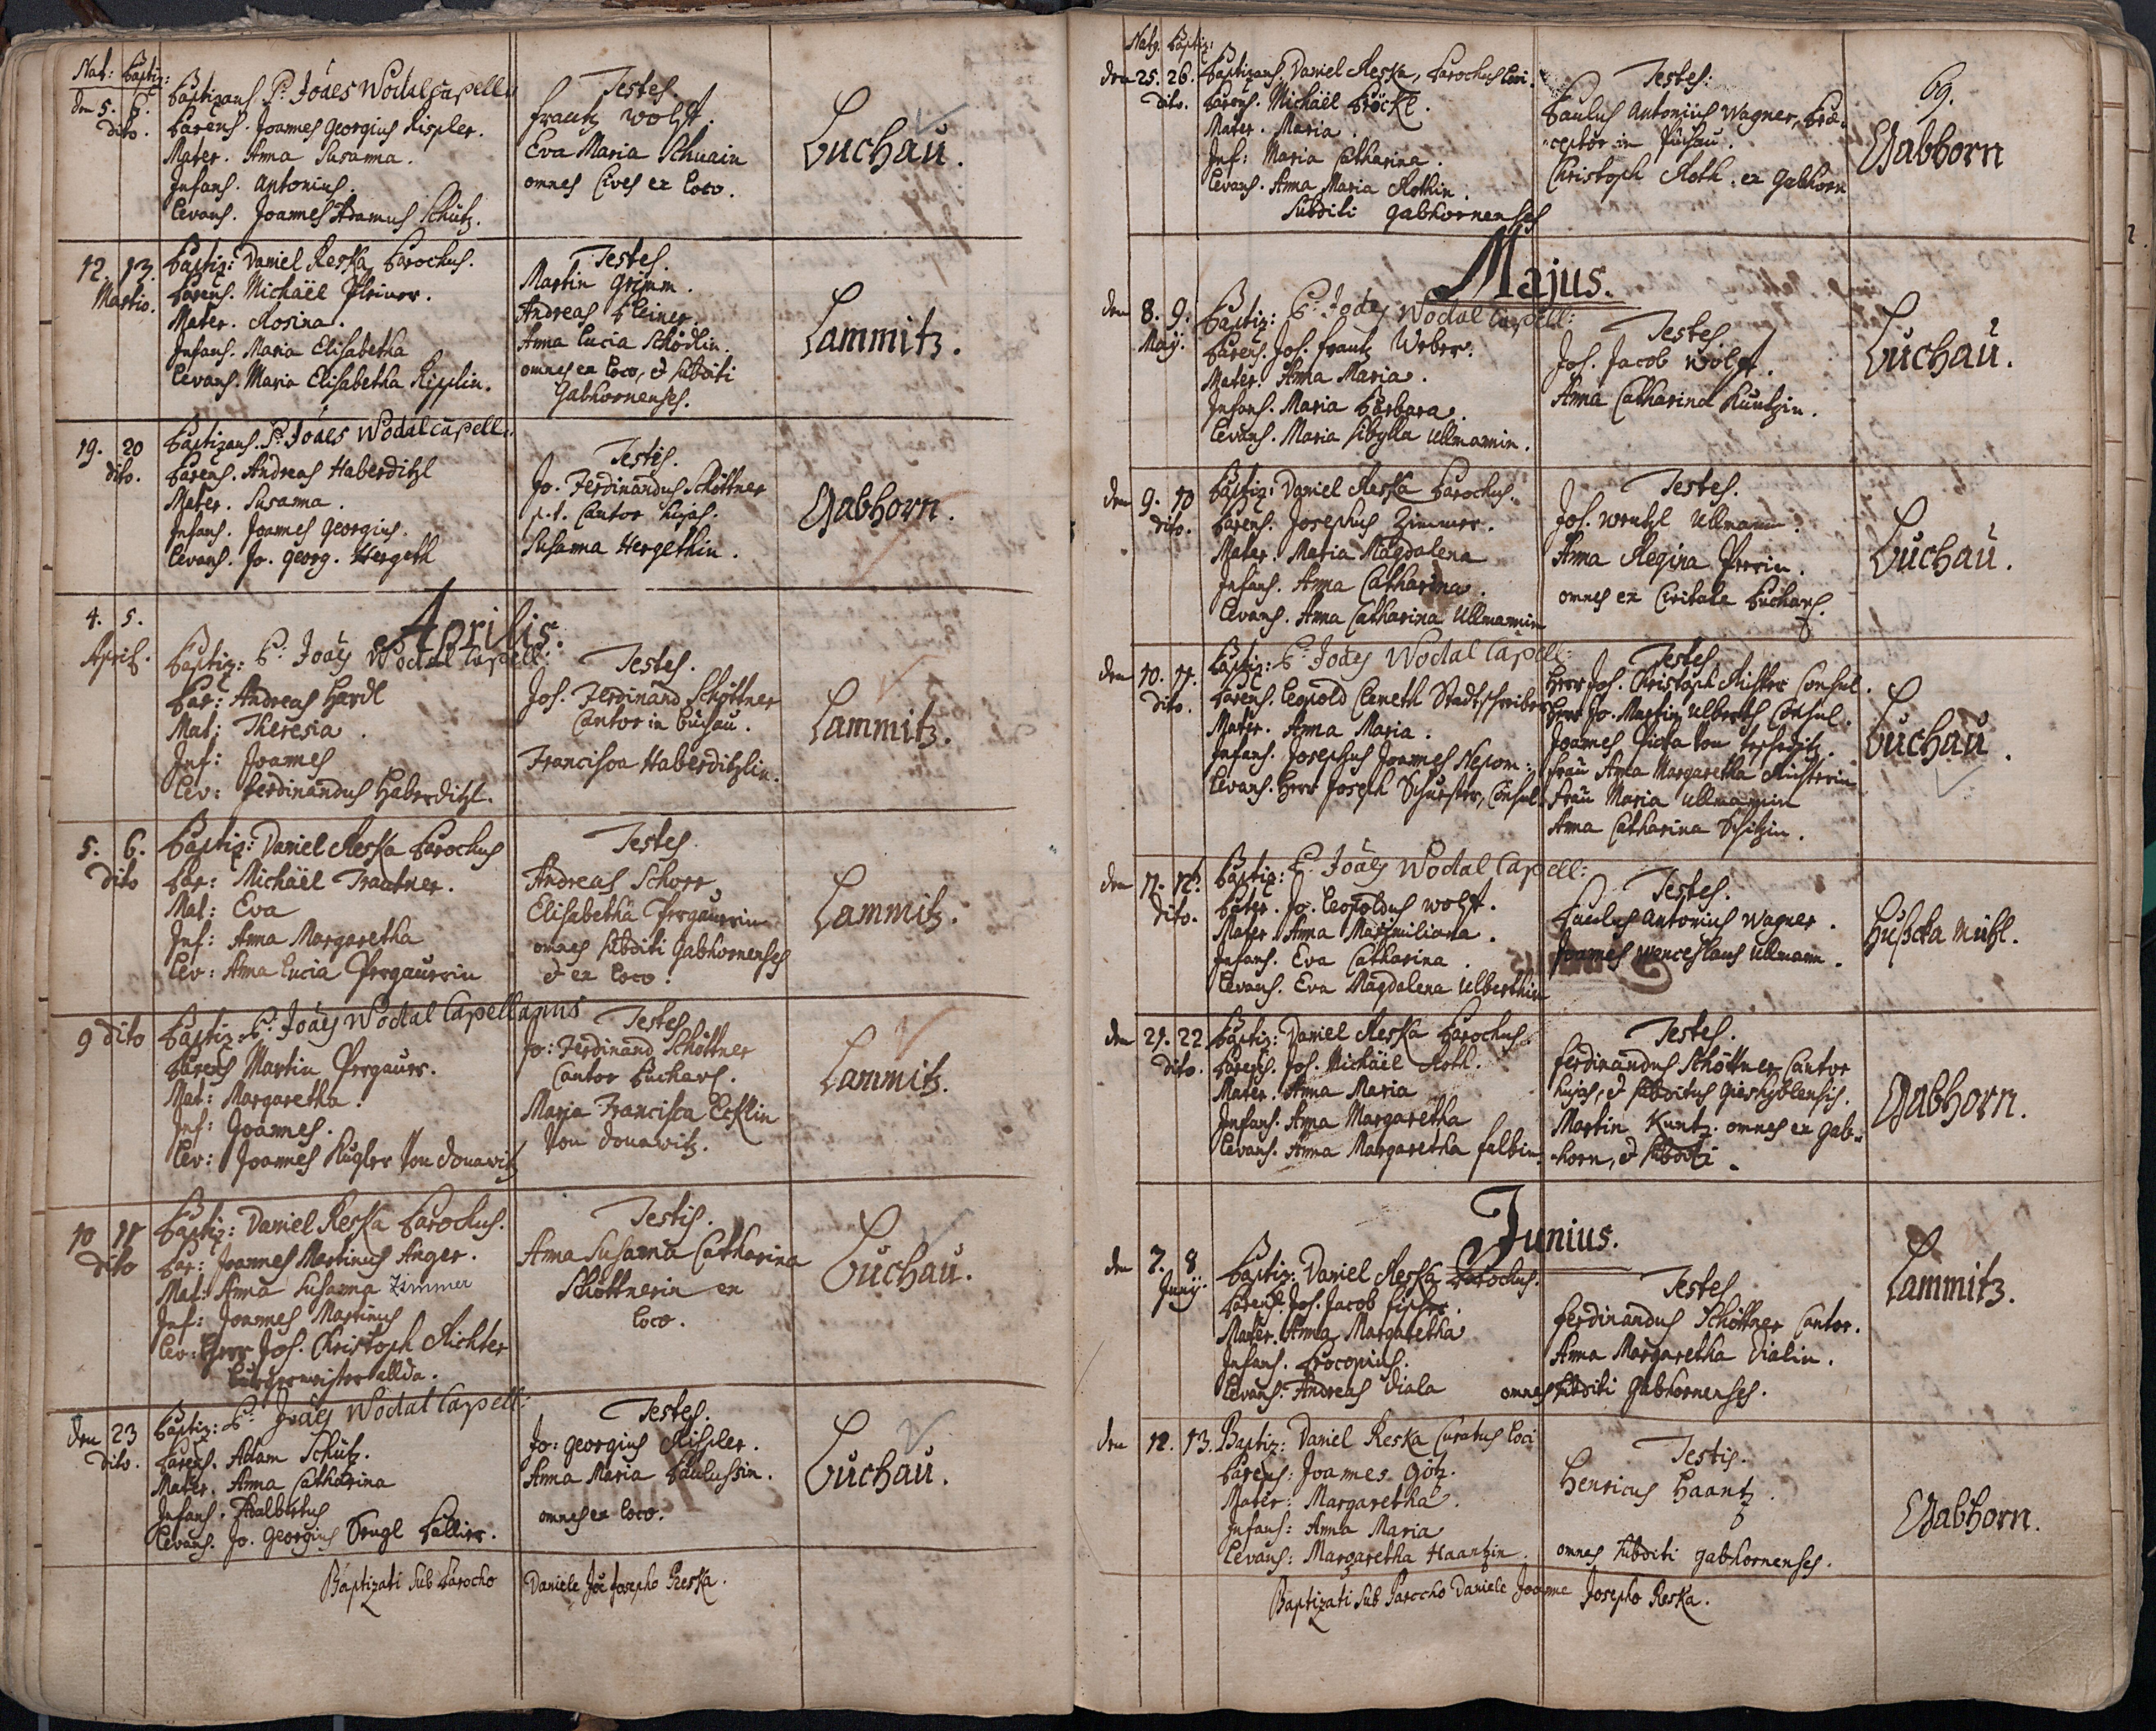 Nat: Baptiz:
den 5. 6. dito.
Baptizans. P: Joães Wodal Capell:
Parens. Joannes Georgius Rispler.
Mater. Anna Susanna.
Infans. Antonius.
Levans. Joannes Adamus Schütz.
Testes.
Frantz Wolff.
Eva Maria Schuain
omnes Cives ex loco.
Luchau.
12. 13. Martio.
Baptiz: Daniel Reska Parochus.
Parens. Michäel Pleiner.
Mater. Rosina.
Infans. Maria Elisabetha
Levans. Maria Elisabetha Ripplin.
Testes.
Martin Grimm.
Andreas Pleiner
Anna Lucia Schödlin.
omnes ex loco, & subditi
Gabhornenses.
Lammitz.
19. 20 dito.
Baptizans. P: Joães Wodal Capell:
Parens. Andreas Haberditzl
Mater. Susanna.
Infans. Joannes Georgius.
Levans. Jo. Georg. Hergeth
Testes.
Jo. Ferdinandus Schöttner
p.t. Cantor hujas.
Susanna Hergethin.
Gabhorn.
Aprilis.
4. 5. April.
Baptiz: P: Joães Wodal Capell:
Par: Andreas Hardl
Mat: Theresia.
Inf: Joannes
Lev: Ferdinandus Haberditzl.
Testes.
Jos. Ferdinand Schöttner
Cantor in Buchau.
Francisca Haberditzlin.
Lammitz.
5. 6. dito
Baptiz: Daniel Reska Parochus
Par: Michäel Trautner.
Mat: Eva
Inf: Anna Margaretha
Lev: Anna Lucia Pergaurin
Testes
Andreas Schorr
Elisabetha Pergaurin
omnes subditi Gabhornenses
& ex loco.
Lammitz.
9 dito
Baptiz. P: Joães Wodal Capellanus
Parens Martin Pergaur.
Mat: Margaretha.
Inf: Joannes.
Lev: Joannes Kugler von Donawitz
Testes
Jo: Ferdinand Schöttner
Cantor Buchav.
Maria Francisca Ecklin
von Donawitz.
Lammitz.
10 11 dito
Baptiz: Daniel Reska Parochus.
Par: Joannes Martinus Anger.
Mat: Anna Susanna Zimmer
Inf: Joannes Martinus
Lev: Herr Jos. Christoph Richter
Bürgermeister allda.
Testis.
Anna Susanna Catharina
Schöttnerin ex
loco.
Luchau.
den 23 dito.
Baptiz: P: Joães Wodal Capell:
Parens. Adam Schütz.
Mater. Anna Catharina
Infans. Adalbertus
Levans. Jo. Georgius Sengl
Testes.
Jo: Georgius Rispler.
Anna Maria Paulussin.
omnes ex loco.
Luchau.
Baptizati sub Parocho Daniele Joē Josepho Reska.
Natg. Baptiz:
69.
den 25. 26. dito.
Baptizans. Daniel Reska, Parochus loci.
Parens. Michäel Pröckl.
Mater. Maria.
Inf: Maria Catharina.
Levans. Anna Maria Rothin.
Subditi Gabhornenses
Testes:
Paulus Antonius Wagner, Præ-
ceptor in Puchau.
Christoph Roth. ex Gabhorn
Gabhorn
Majus.
den 8. 9. Maÿ.
Baptiz: P: Joães Wodal Capell:
Parens. Jos. Frantz Weber.
Mater. Anna Maria.
Infans. Maria Barbara.
Levans. Maria Sibylla Ullmannin.
Testes
Jos. Jacob Wolff.
Anna Catharina Kuntzin.
Luchau.
den 9. 10 dito.
Baptiz: Daniel Reska Parochus.
Parens. Josephus Zimmer.
Mater. Maria Magdalena
Infans. Anna Catharina.
Levans. Anna Catharina Ullmannin
Testes.
Jos. Wentzl Ullmann.
Anna Regina
omnes ex Civitate Buchav.
Luchau.
den 10. 11. dito.
Baptiz: P: Joães Wodal Capell:
Parens. Leopold Clemeth Stadtschreiber
Mater. Anna Maria.
Infans. Josephus Joannes Nepom:
Levans. Herr Joseph Schuester, Consul
Testes
Herr Jos. Christoph Richter Consul.
Herr Jo. Martin Ulberth Consul.
Joannes
Frau Anna Margaretha Richterin
Frau Maria Ullmannin
Anna Catharina Schitzin.
Luchau.
den 11. 12. dito.
Baptiz: P: Joães Wodal Capell:
Pater. Jo. Leopoldus Wolff.
Mater. Anna Maximiliana.
Infans. Eva Catharina.
Levans. Eva Magdalena Ulberthin
Testes.
Paulus Antonius Wagner.
Joannes Wenceslaus Ullmann.
Hußcka Mühl.
den 21. 22 dito.
Baptiz: Daniel Reska Parochus.
Parens. Jos. Michäel Roth.
Mater. Anna Maria
Infans. Anna Margaretha
Levans. Anna Margaretha Falbin
Testes.
Ferdinandus Schöttner Cantor
hujas, & subditus Gieshyblensis.
Martin Kuntz. omnes ex Gab-
horn, & subditi.
Gabhorn.
Junius.
den 7. 8 Junÿ.
Baptiz: Daniel Reska Parochus.
Parens. Jos. Jacob Fischer.
Mater. Anna Margaretha
Infans. Procopius.
Levans. Andreas Diala
Testes
Ferdinandus Schöttner Cantor.
Anna Margaretha Dialin.
omnes subditi Gabhornenses.
Lammitz.
den 12. 13.
Baptiz: Daniel Reska Curatus loci
Parens: Joannes Götz.
Mater: Margaretha.
Infans: Anna Maria
Levans: Margaretha Haantzin.
Testis.
Henricus Haantz.
omnes subditi Gabhornenses.
Gabhorn.
Baptizati sub Parocho Daniele Joanne Josepho Reska.